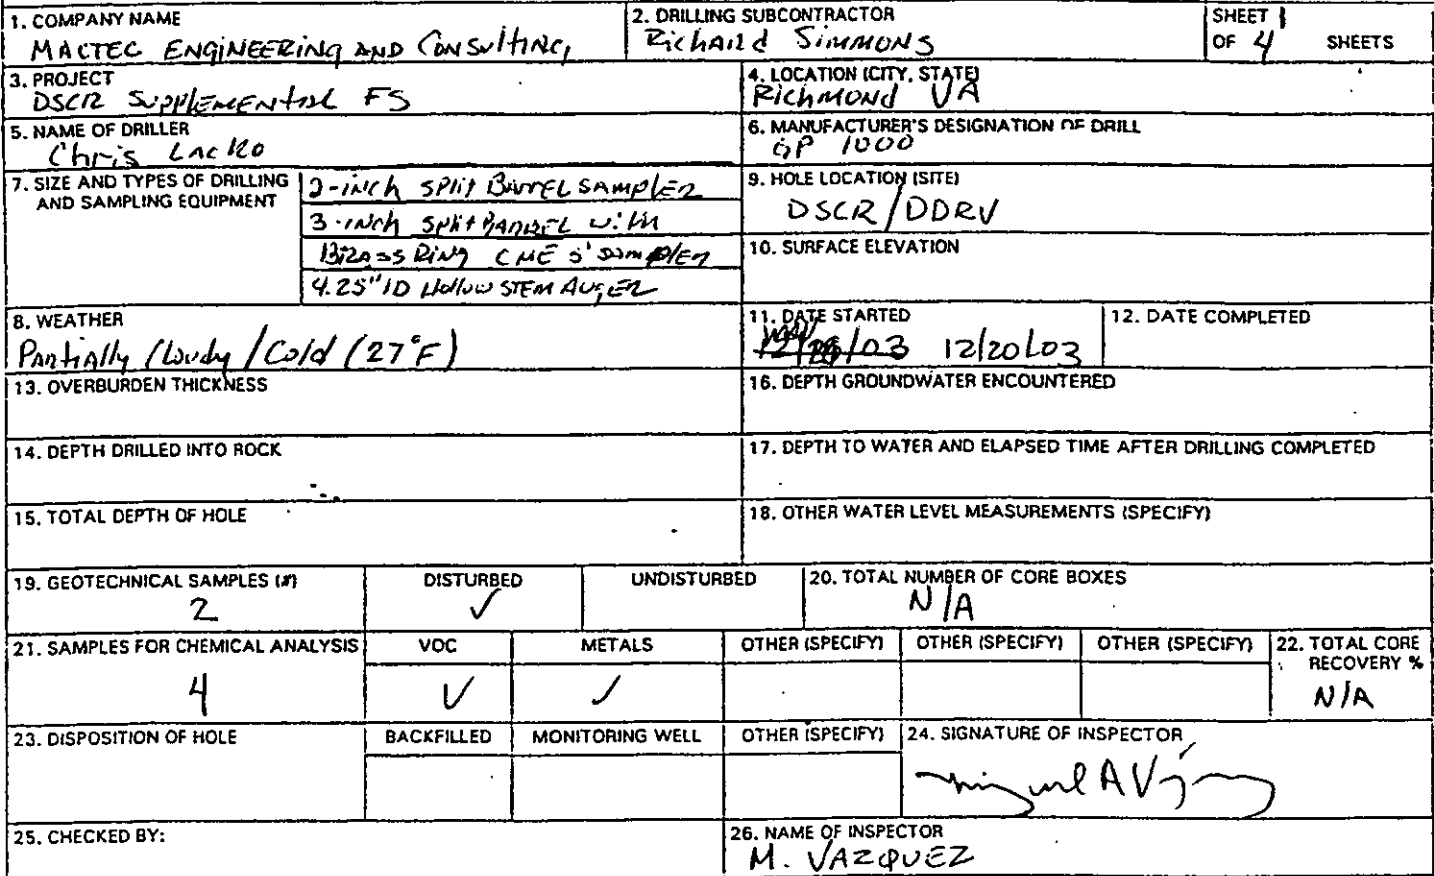 1. COMPANY NAME
MACTEC ENGINEERING AND CONSULTING,
2. DRILLING SUBCONTRACTOR
Richard Simmons
SHEET 1
OF 4 SHEETS
3. PROJECT
DSCR Supplemental FS
4. LOCATION (CITY, STATE)
Richmond VA
5. NAME OF DRILLER
Chris Lacko
6. MANUFACTURER'S DESIGNATION OF DRILL
GP 1000
7. SIZE AND TYPES OF DRILLING
AND SAMPLING EQUIPMENT
2-inch Split Barrel Sampler
3-inch Split Barrel with
Brass Ring CME 5' Sampler
4.25" ID Hollow STEM Auger
9. HOLE LOCATION (SITE)
DSCR/DDRV
10. SURFACE ELEVATION
8. WEATHER
Partially Cloudy/Cold (27°F)
11. DATE STARTED
12/20/03
12. DATE COMPLETED
13. OVERBURDEN THICKNESS
16. DEPTH GROUNDWATER ENCOUNTERED
14. DEPTH DRILLED INTO ROCK
17. DEPTH TO WATER AND ELAPSED TIME AFTER DRILLING COMPLETED
15. TOTAL DEPTH OF HOLE
18. OTHER WATER LEVEL MEASUREMENTS (SPECIFY)
19. GEOTECHNICAL SAMPLES (#)
2
DISTURBED
✓
UNDISTURBED
20. TOTAL NUMBER OF CORE BOXES
N/A
21. SAMPLES FOR CHEMICAL ANALYSIS
4
VOC
✓
METALS
✓
OTHER (SPECIFY)
OTHER (SPECIFY)
OTHER (SPECIFY)
22. TOTAL CORE
RECOVERY %
N/A
23. DISPOSITION OF HOLE
BACKFILLED
MONITORING WELL
OTHER (SPECIFY)
24. SIGNATURE OF INSPECTOR
25. CHECKED BY:
26. NAME OF INSPECTOR
M. VAZQUEZ